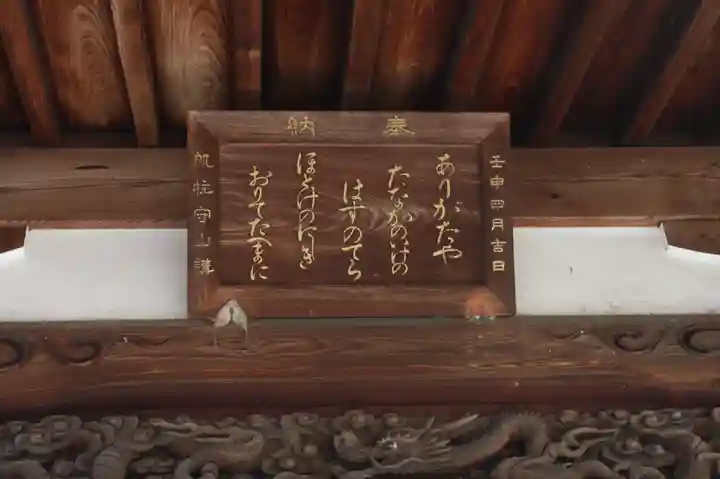 奉納
壬申四月吉日
ありがたや
たなかのいけの
はすのてら
ほとけのにしき
おりてたへまに
守山講